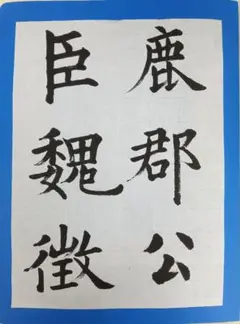 鹿郡公
臣魏徵